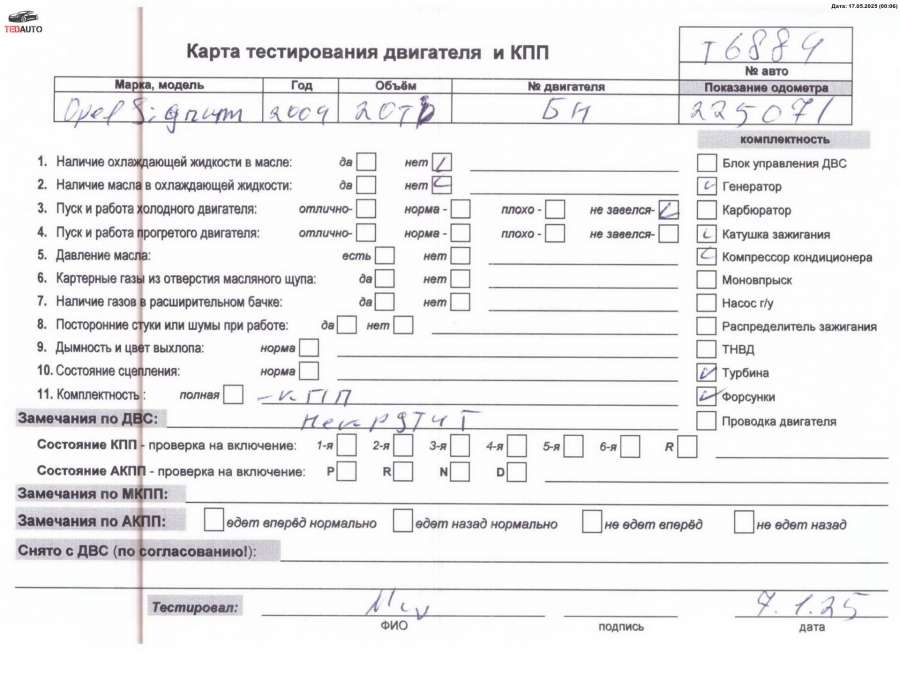 Дата: 17.05.2025 (00:06)
TEDAUTO
Карта тестирования двигателя и КПП
T6889
№ авто
Марка, модель Год Объём № двигателя Показание одометра
Opel Signum 2004 20Ть БН 225071
комплектность
1. Наличие охлаждающей жидкости в масле: да нет
2. Наличие масла в охлаждающей жидкости: да нет
3. Пуск и работа холодного двигателя: отлично- норма - плохо - не завелся-
4. Пуск и работа прогретого двигателя: отлично- норма - плохо - не завелся-
5. Давление масла: есть нет
6. Картерные газы из отверстия масляного щупа: да нет
7. Наличие газов в расширительном бачке: да нет
8. Посторонние стуки или шумы при работе: да нет
9. Дымность и цвет выхлопа: норма
10. Состояние сцепления: норма
11. Комплектность : полная - КПП
Блок управления ДВС
Генератор
Карбюратор
Катушка зажигания
Компрессор кондиционера
Моновпрыск
Насос г/у
Распределитель зажигания
ТНВД
Турбина
Форсунки
Проводка двигателя
Замечания по ДВС:
Состояние КПП - проверка на включение: 1-я 2-я 3-я 4-я 5-я 6-я R
Состояние АКПП - проверка на включение: P R N D
Замечания по МКПП:
Замечания по АКПП: едет вперёд нормально едет назад нормально не едет вперёд не едет назад
Снято с ДВС (по согласованию!):
Тестировал: 7.1.25
ФИО подпись дата